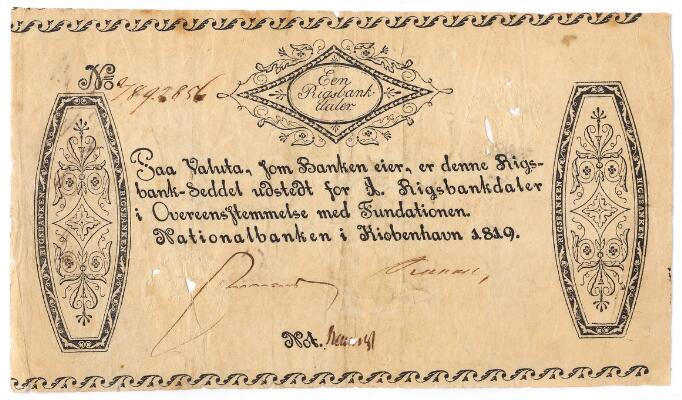 Een
Rigsbank-
daler
No 1892856
Paa Valuta, som Banken eier, er denne Rigs-
bank-Seddel udstedt for 1. Rigsbankdaler
i Overeensstemmelse med Fundationen.
Nationalbanken i Kiøbenhavn 1819.
Not.
RIGSBANKEN
RIGSBANKEN
RIGSBANKEN
RIGSBANKEN